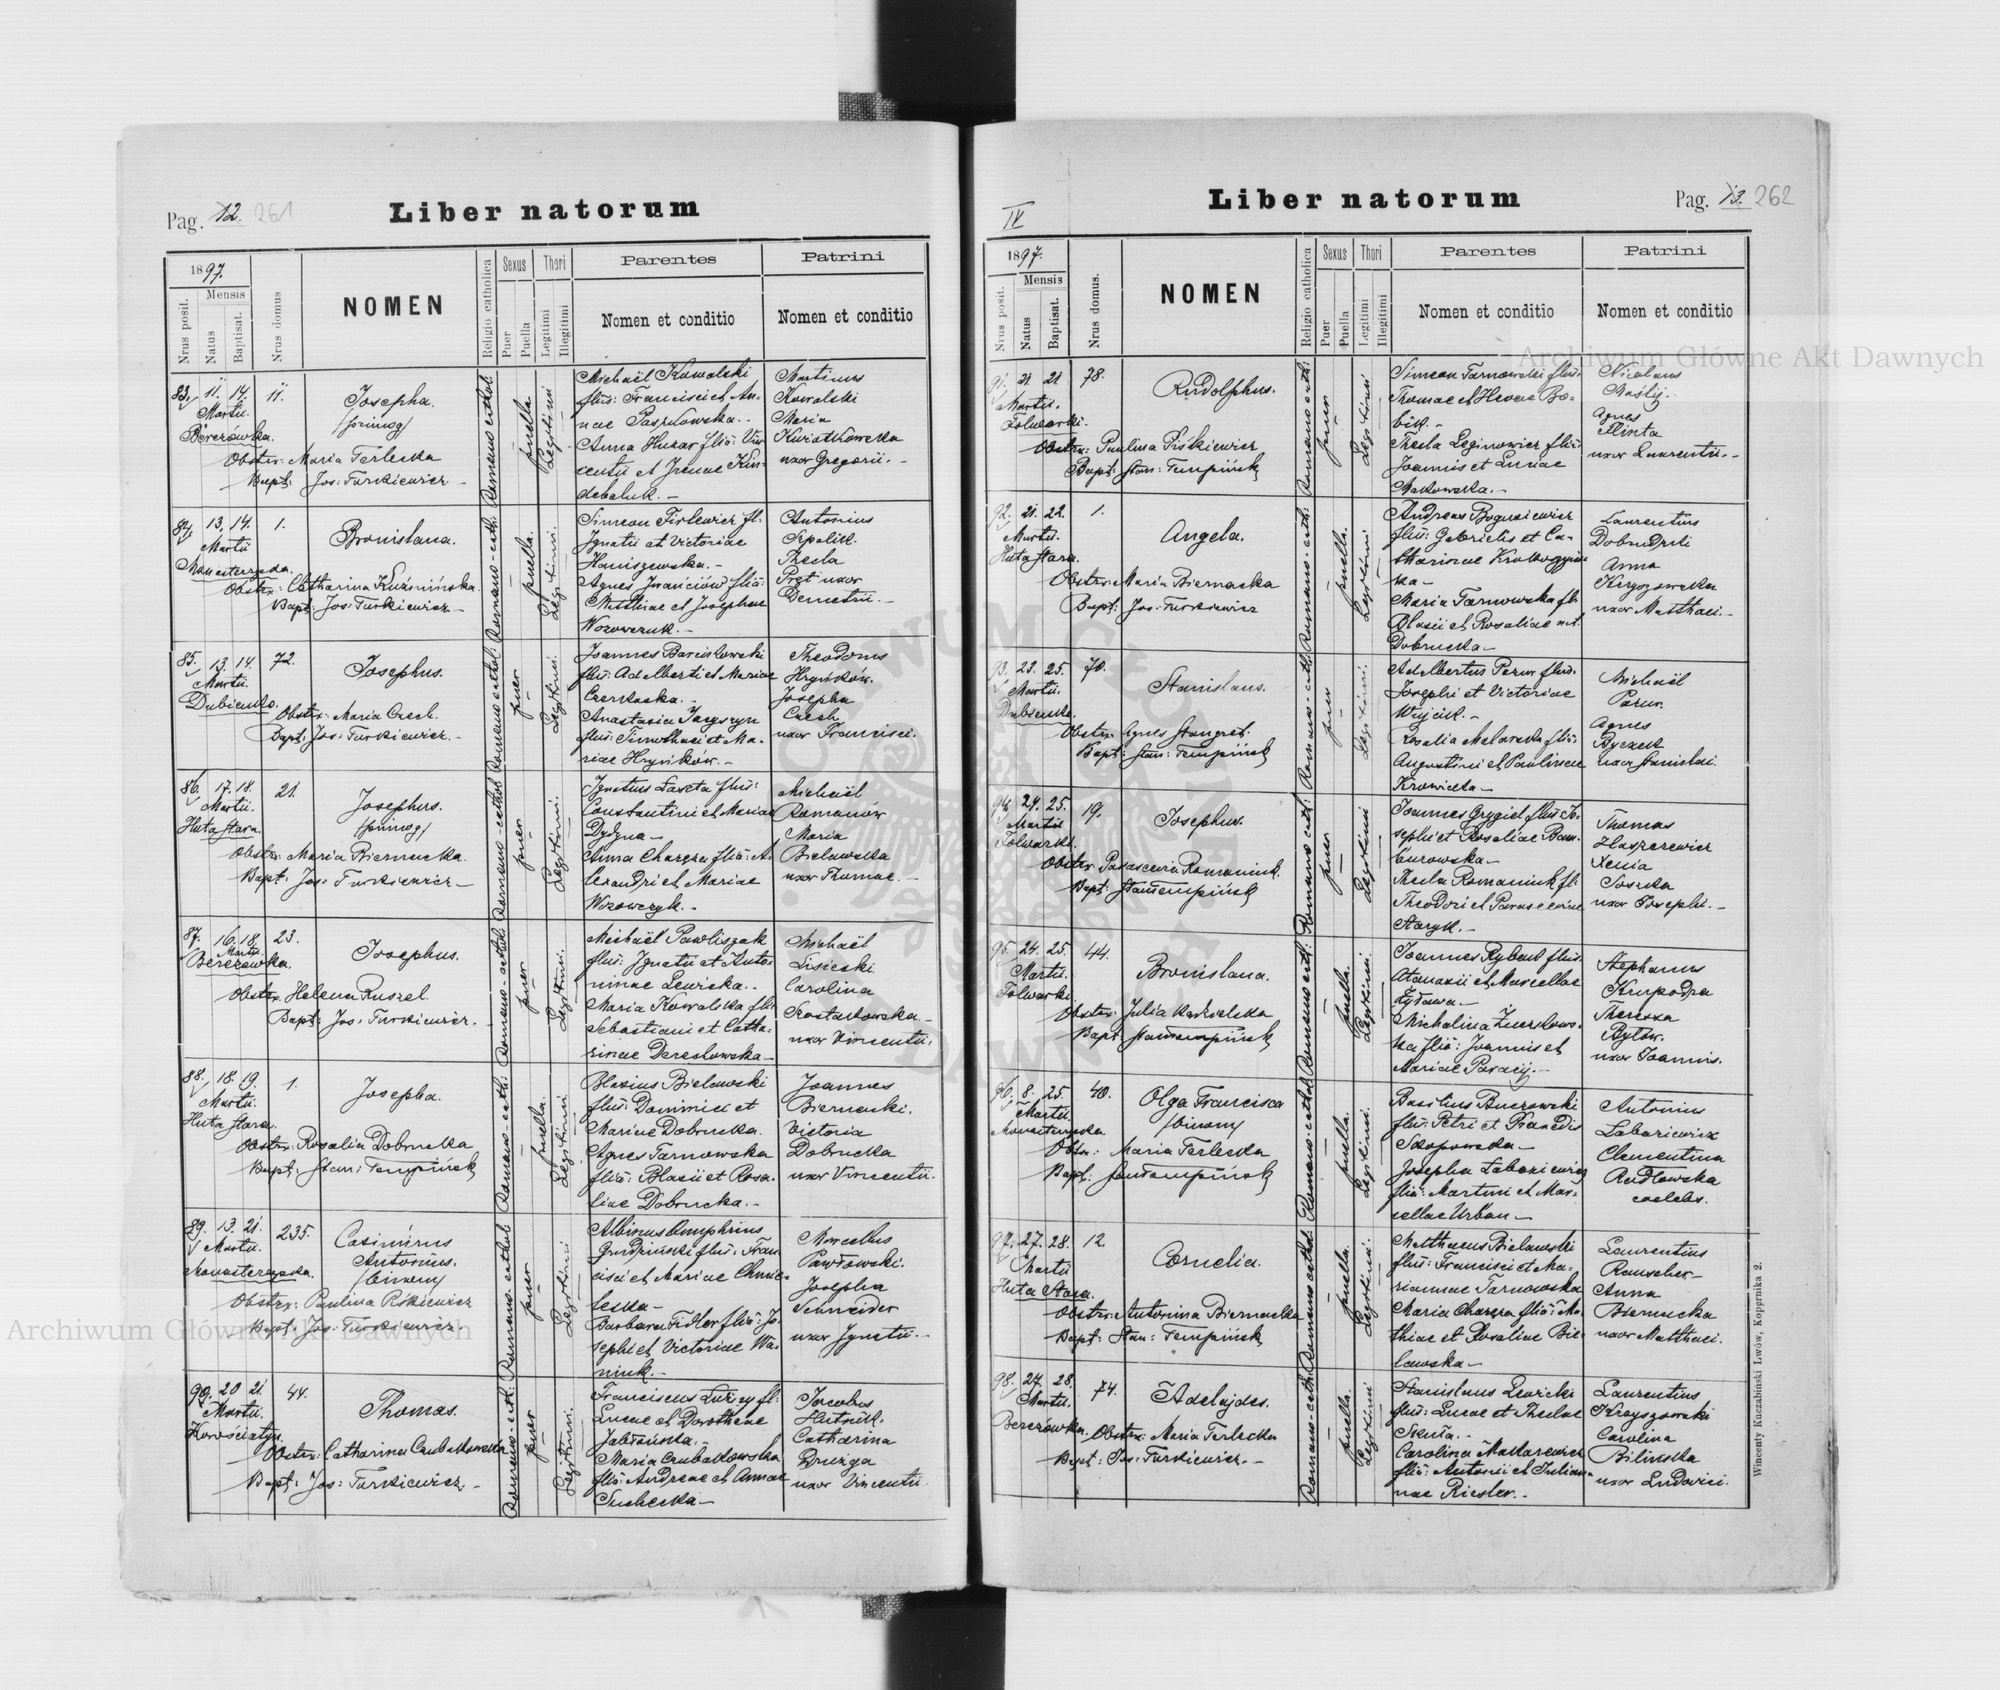 Pag. 12. 261
Liber natorum
1897.
Nrus posit.
Mensis
Natus
Baptisat.
Nrus domus
NOMEN
Religio catholica
Sexus
Puer
Puella
Thori
Legitimi
Illegitimi
Parentes
Nomen et conditio
Patrini
Nomen et conditio
83. 11. 14. 11.
Martii
Berezówka.
Josepha.
Obstrx: Maria Terlecka
Bapt: Jos: Turkiewicz
Romano cathol:
puella
Legitimi
Michaël Kowalski
flius: Francisci et An-
nae Paszkowska.
Anna Huzar flia: Vin-
centii et Irenae
Martinus
Kowalski
Maria
Kwiatkowska
uxor Gregorii.
84. 13. 14. 1.
Martii
Monasterzyska.
Bronislava.
Obstrx: Catharina Kuźmińska.
Bapt: Jos: Turkiewicz
Romano-cath:
puella.
Legitimi.
Simeon fl:
Ignatii et Victoriae
Haniszewska.
Agnes Iwańciów flia:
Matthiae et Josephae
Wozowczuk.
Antonius
Thecla
uxor
Demetrii.
85. 13. 14. 72.
Martii.
Dubienko.
Josephus.
Obstrx: Maria Czech.
Bapt: Jos: Turkiewicz.
Romano cathol:
puer
Legitimi.
Joannes
flius: Adalberti et Mariae
Anastasia
flia: Timothaei et Ma-
riae Hryńków.
Theodorus
Hryńków.
Josepha
Czech
uxor Francisci.
86. 17. 18. 21.
Martii.
Huta stara.
Josephus.
Obstrx: Maria Biernacka.
Bapt: Jos: Turkiewicz
Romano-cathol
puer
Legitimi.
Ignatius flius:
Constantini et Mariae
Dydyna
Anna Charęza flia: A-
lexandri et Mariae
Wozowczyk.
Michaël
Romanów
Maria
Bielawska
uxor Thomae.
87. 16. 18. 23.
Martii.
Berezówka.
Josephus.
Obstrx: Helena Ruszel.
Bapt: Jos: Turkiewicz.
Romano-cathol.
puer
Legitimi.
Michaël Pawliszak
flius: Ignatii et Anto-
ninae Lewicka.
Maria Kowalska flia:
Sebastiani et Catha-
rinae Dereskowska
Michaël
Lisiecki
Carolina
uxor Vincentii.
88. 18. 19. 1.
Martii.
Huta stara.
Josepha.
Obstrx: Rosalia Dobrucka
Bapt: Stan: Tempiński
Romano-cath:
puella.
Legitimi
Blasius Bielawski
flius: Dominici et
Mariae Dobrucka.
Agnes Tarnowska
flia: Blasii et Rosa-
liae Dobrucka.
Joannes
Biernacki.
Victoria
Dobrucka
uxor Vincentii.
89. 13. 21. 235.
Martii.
Monasterzyska.
Casimirus
Antonius.
Obstrx: Paulina Piśkiewicz
Bapt: Jos: Turkiewicz.
Romano cathol
puer
Legitimi
Albinus Onuphrius
Gudziński flius: Fran-
cisci et Mariae Chmie-
lecka
Barbara Fidler flia: Jo-
sephi et Victoriae Wa-
niuk.
Marcellus
Pawłowski.
Josepha
Schneider
uxor Ignatii.
90. 20 21. 44.
Martii.
Korościatyn.
Thomas.
Obstrx: Catharina Czubakowska
Bapt: Jos: Turkiewicz.
Romano-cath.
puer
Legitimi.
Franciscus fl:
Lucae et Dorotheae
Jabłońska.
Maria Czubakowska
flia: Andreae et Annae
Suchecka
Jacobus
Hutnik.
Catharina
Drużga
uxor Vincentii.
IV
Liber natorum
Pag. 13. 262
1897.
Nrus posit.
Mensis
Natus
Baptisat.
Nrus domus.
NOMEN
Religio catholica
Sexus
Puer
Puella
Thori
Legitimi
Illegitimi
Parentes
Nomen et conditio
Patrini
Nomen et conditio
91. 21. 21. 78.
Martii.
Folwarki.
Rudolphus.
Obstrx: Paulina Piśkiewicz
Bapt: Stan: Tempiński
Romano-cath:
puer
Legitimi
Simeon Tarnowski flius.
Thomae et Bo-
Thecla Leginowicz flia:
Joannis et Luciae
Makowska.
Nicolaus
Agnes
uxor Laurentii.
92. 21. 22. 1.
Martii.
Huta stara.
Angela.
Obstrx: Maria Biernacka
Bapt: Jos: Turkiewicz
Romano-cath:
puella.
Legitimi
Andreas Bogusiewicz
flius: Gabrielis et Ca-
tharinae
Maria Tarnowska fl:
Blasii et Rosaliae
Dobrucka
Laurentius
Dobrudzki
Anna
Kryszowska
uxor Matthaei.
93. 22. 25. 70.
Martii.
Dubienko.
Stanislaus.
Obstrx: Agnes Stangret.
Bapt: Stan: Tempiński
Romano-cath:
puer
Legitimi
Adalbertus flius.
Josephi et Victoriae
Wujcik.
Rosalia flia:
Augustini et Paulinae
Krowicka
Michaël
Agnes
Byczek
uxor Stanislai.
94. 24. 25. 19.
Martii
Folwarki.
Josephus.
Obstrx Parascevia Romaniuk.
Bapt: Stan Tempiński
Romano cath:
puer
Legitimi
Joannes Grygiel flius Jo-
sephi et Rosaliae
Thecla Romaniuk fl:
Theodori et Parasceviae
Staryk.
Thomas
Xenia
Soszka
uxor Josephi.
95. 24. 25. 44.
Martii.
Folwarki.
Bronislava.
Obstrx: Julia
Bapt: Stan Tempiński
Romano cath:
puella.
Legitimi
Joannes flius.
Atanasii et Marcellae
Michalina
flia: Joannis et
Mariae
Stephanus
Krupodra
Theresia
uxor Joannis.
96. 8. 25. 40.
Martii
Monasterzyska.
Olga Francisca
Obstrx: Maria Terlecka
Bapt: Stan Tempiński
Romano-cathol
puella.
Legitimi.
Basilius Buczowski
flius: Petri et
Josepha
flia: Martini et Mar-
cellae Urban
Antonius
Clementina
Rudkowska
caelebs.
97. 27. 28. 12.
Martii
Huta Stara.
Cornelia.
Obstrx: Antonina Biernacka
Bapt: Stan: Tempiński
Romano cathol:
puella.
Legitimi.
Matthaeus Bielawski
flius: Francisci et Ma-
riannae Tarnowska
Maria Charęza flia: Ma-
thiae et Rosaliae Bie-
lawska
Laurentius
Rauscher
Anna
Biernacka
uxor Matthaei.
98. 24. 28. 74.
Martii.
Berezówka.
Adelajdes.
Obstrx: Maria Terlecka
Bapt: Jos: Turkiewicz.
Romano-cath
puella.
Legitimi
Stanislaus Lewicki
flius: Lucae et Theclae
Carolina Makarewicz
flia: Antonii et Julian-
nae Riesler.
Laurentius
Kryszowski
Carolina
Bilińska
uxor Ludovici.
Wincenty Kuczabiński Lwów, Kopernika 2.
Archiwum Główne Akt Dawnych
Archiwum Główne Akt Dawnych